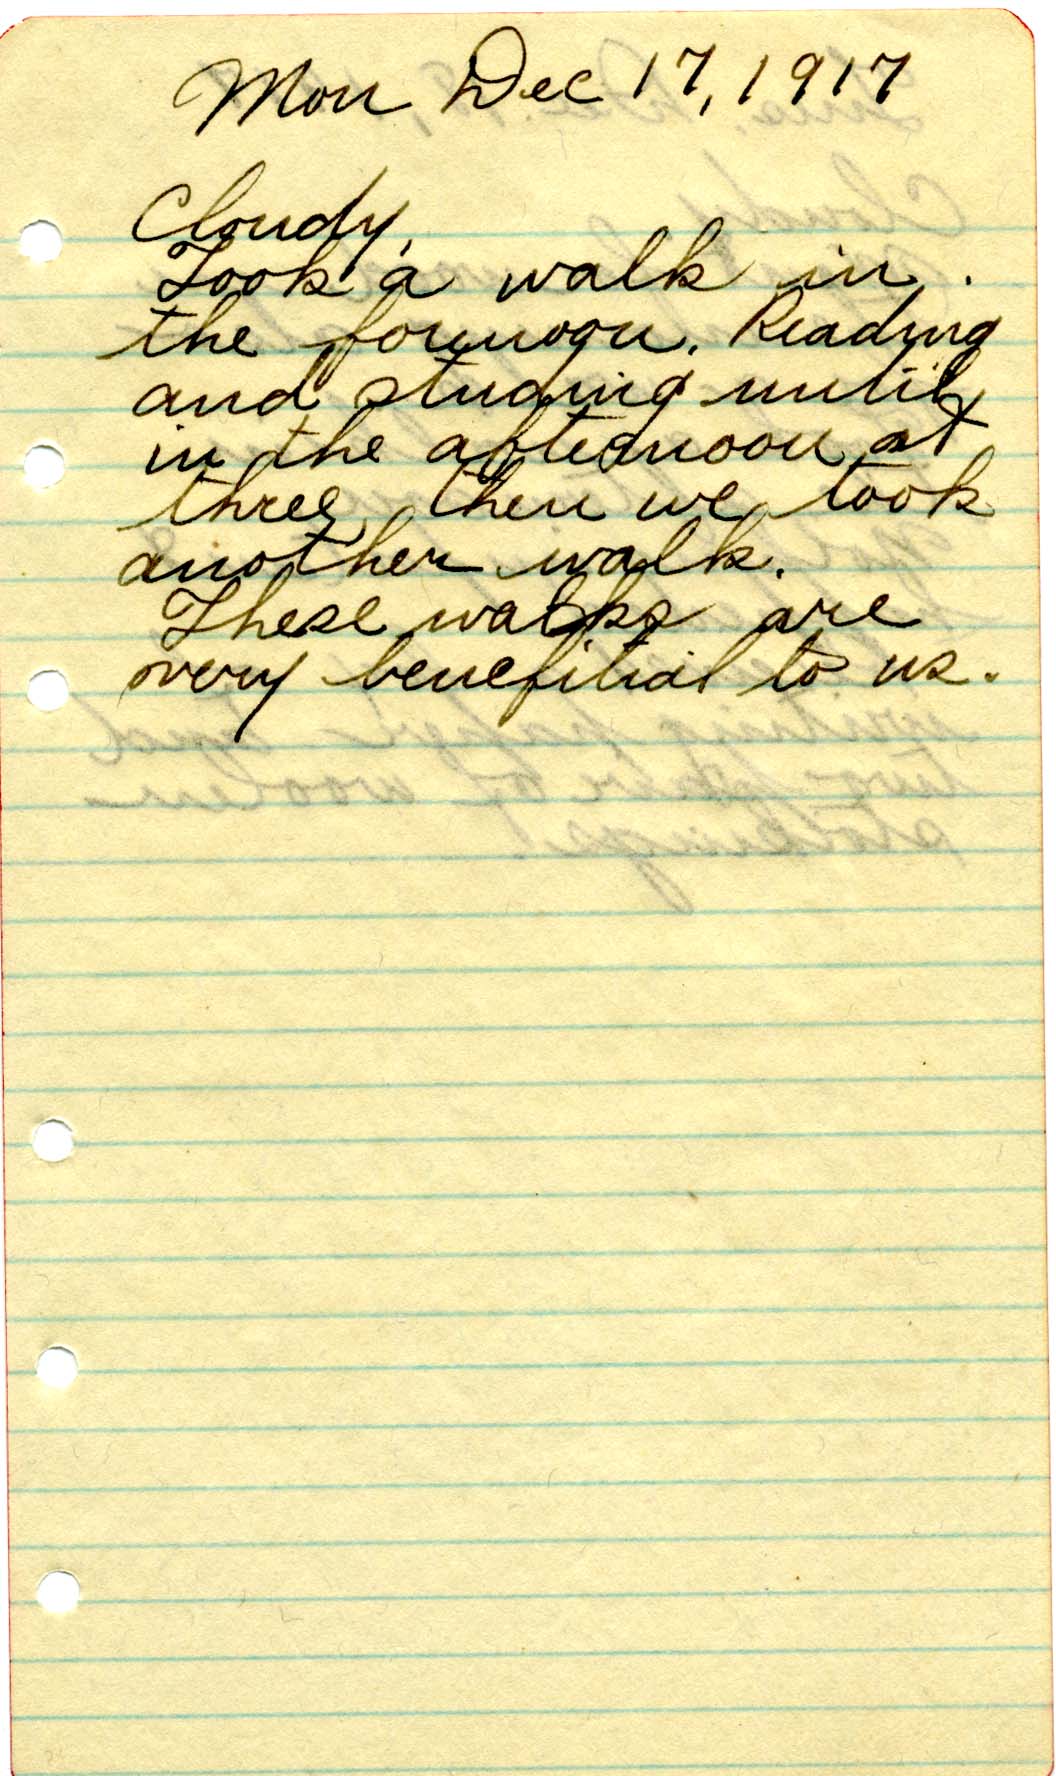 Mon Dec 17, 1917
Cloudy.
Took a walk in
the fornoon. Reading
and studing until
in the afternoon at
three, then we took
another walk.
These walks are
very benefitial to us.